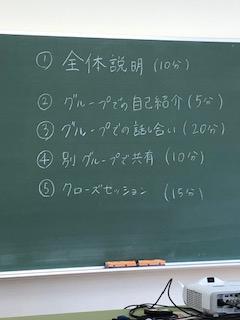 ① 全体説明 (10分)
② グループでの自己紹介 (5分)
③ グループでの話し合い (20分)
④ 別グループで共有 (10分)
⑤ クローズセッション (15分)